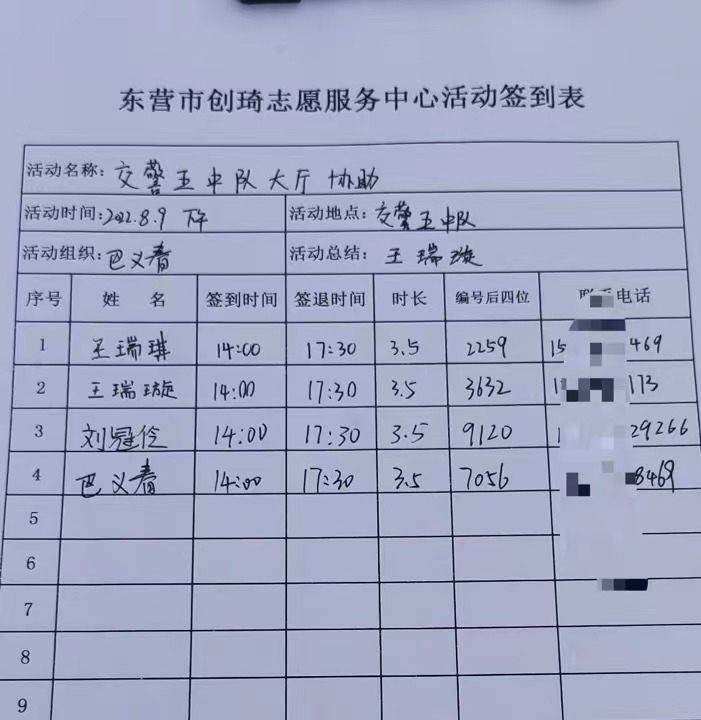 东营市创琦志愿服务中心活动签到表
活动名称: 交警五中队大厅协助
活动时间: 2022.8.9 下午 活动地点: 交警五中队
活动组织: 巴义春 活动总结: 王瑞璇
序号 姓 名 签到时间 签退时间 时长 编号后四位 电话
1 王瑞琪 14:00 17:30 3.5 2259 15 469
2 王瑞璇 14:00 17:30 3.5 3632 1 173
3 刘冠伶 14:00 17:30 3.5 9120 1 29266
4 巴义春 14:00 17:30 3.5 7056 8469
5
6
7
8
9